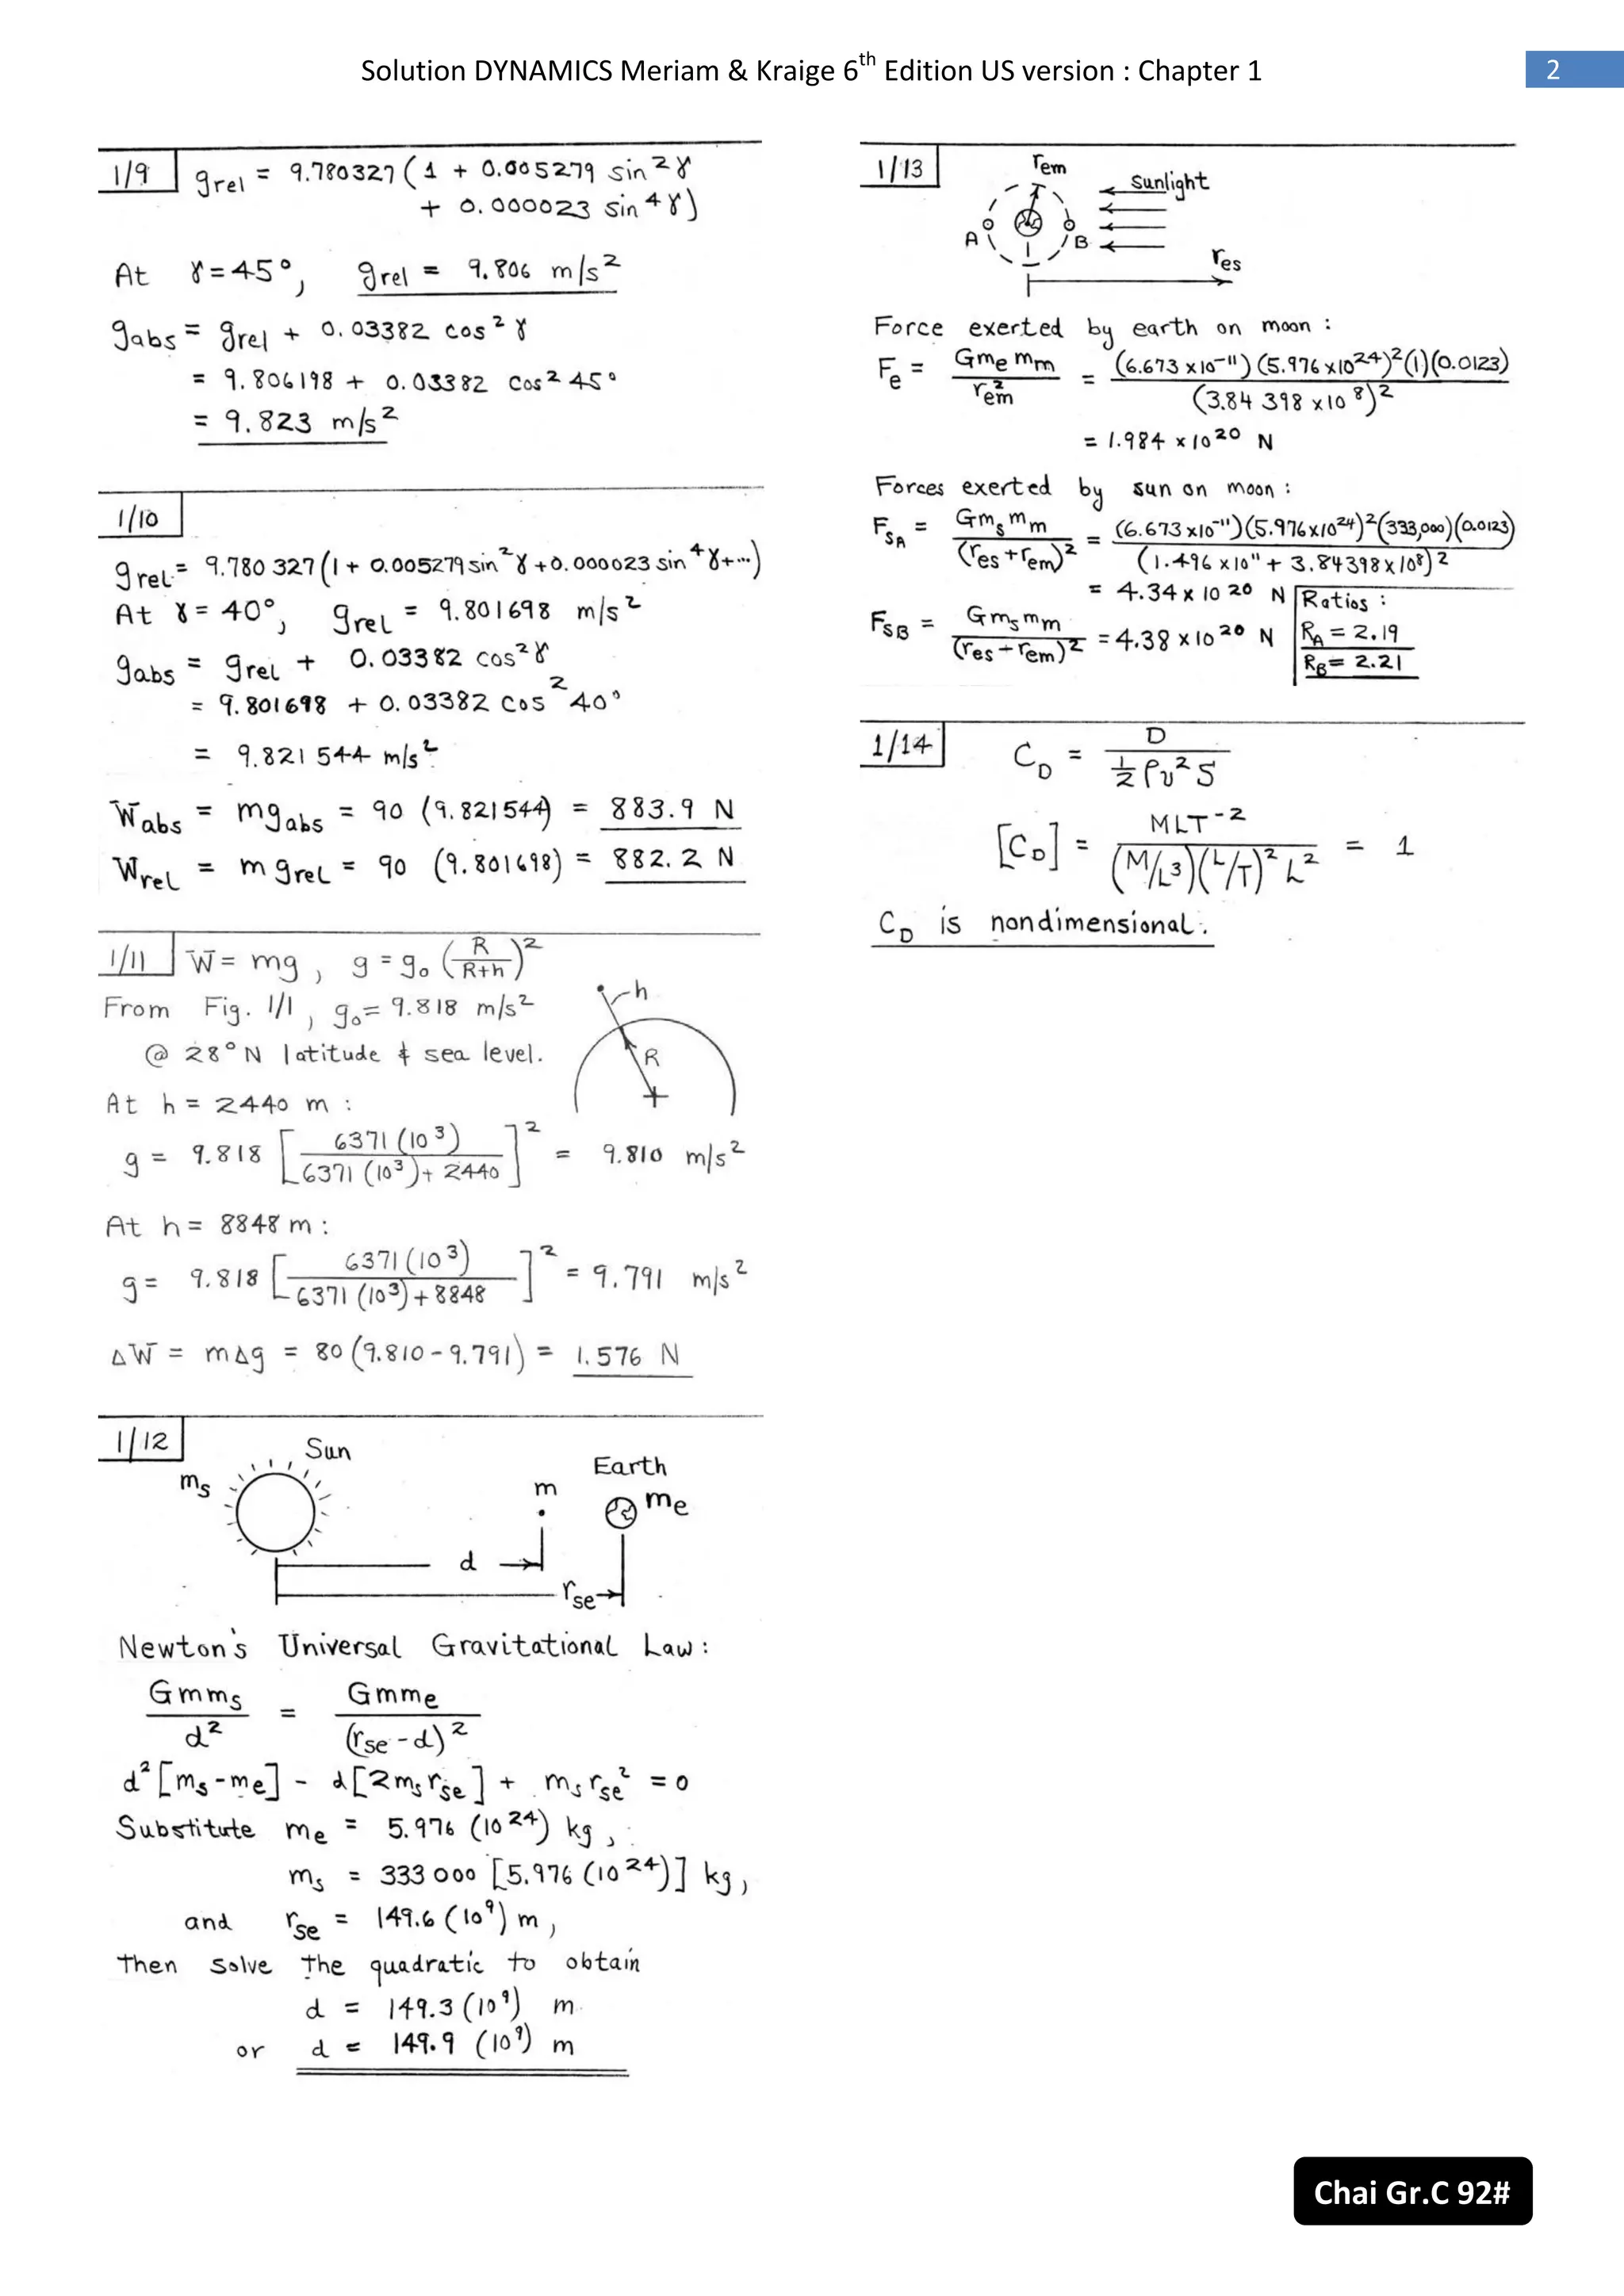 Solution DYNAMICS Meriam & Kraige 6th Edition US version : Chapter 1
2
1/9
g_rel = 9.780327 (1 + 0.005279 sin²γ
+ 0.000023 sin⁴γ)
At γ = 45°, g_rel = 9.806 m/s²
g_abs = g_rel + 0.03382 cos²γ
= 9.806198 + 0.03382 cos² 45°
= 9.823 m/s²
1/10
g_rel = 9.780 327 (1 + 0.005279 sin²γ + 0.000023 sin⁴γ + ...)
At γ = 40°, g_rel = 9.801698 m/s²
g_abs = g_rel + 0.03382 cos²γ
= 9.801698 + 0.03382 cos² 40°
= 9.821 544 m/s²
W_abs = mg_abs = 90 (9.821544) = 883.9 N
W_rel = mg_rel = 90 (9.801698) = 882.2 N
1/11
W = mg, g = g₀ (R/(R+h))²
From Fig. 1/1, g₀ = 9.818 m/s²
@ 28° N latitude & sea level.
h
R
At h = 2440 m :
g = 9.818 [6371 (10³) / (6371 (10³) + 2440)]² = 9.810 m/s²
At h = 8848 m :
g = 9.818 [6371 (10³) / (6371 (10³) + 8848)]² = 9.791 m/s²
ΔW = mΔg = 80 (9.810 - 9.791) = 1.576 N
1/12
Sun
m_s
m
Earth
m_e
d
r_se
Newton's Universal Gravitational Law :
Gmm_s / d² = Gmm_e / (r_se - d)²
d² [m_s - m_e] - d [2m_s r_se] + m_s r_se² = 0
Substitute m_e = 5.976 (10²⁴) kg,
m_s = 333 000 [5.976 (10²⁴)] kg,
and r_se = 149.6 (10⁹) m,
Then solve the quadratic to obtain
d = 149.3 (10⁹) m
or d = 149.9 (10⁹) m
1/13
r_em
sunlight
A
B
r_es
Force exerted by earth on moon :
F_e = Gm_e m_m / r_em² = (6.673 x 10⁻¹¹) (5.976 x 10²⁴)² (1) (0.0123) / (3.84 398 x 10⁸)²
= 1.984 x 10²⁰ N
Forces exerted by sun on moon :
F_SA = Gm_s m_m / (r_es + r_em)² = (6.673 x 10⁻¹¹) (5.976 x 10²⁴)² (333,000) (0.0123) / (1.496 x 10¹¹ + 3.84398 x 10⁸)²
= 4.34 x 10²⁰ N
F_SB = Gm_s m_m / (r_es - r_em)² = 4.38 x 10²⁰ N
Ratios :
R_A = 2.19
R_B = 2.21
1/14
C_D = D / (½ ρv² S)
[C_D] = MLT⁻² / ((M/L³) (L/T)² L²) = 1
C_D is nondimensional.
Chai Gr.C 92#